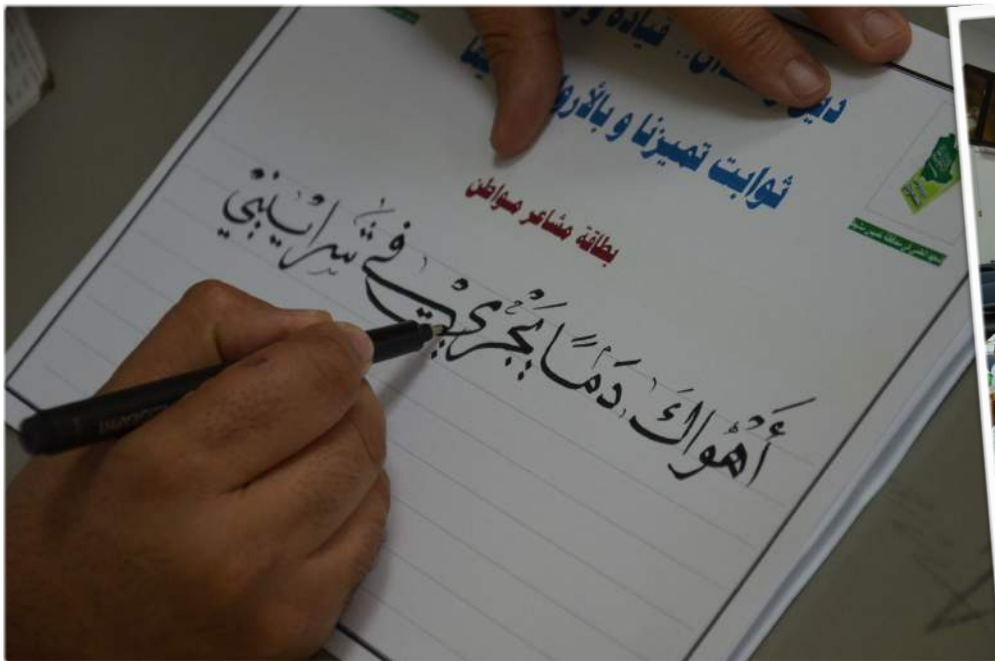 قيادة
ثوابت تميزنا و
بطاقة مشاعر مواطن
أَهْوَاكَ دَمًا يَجْرِيْ فِي شَرَايْينِي